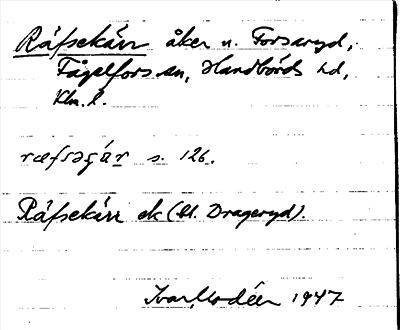 Räfsekärr åker u. Forsaryd,
Fågelfors sn, Handbörds hd,
Klm. l.
ræfsəgár s. 126.
Räfsekärr ek (bl. Drageryd).
Ivar Modéer 1947